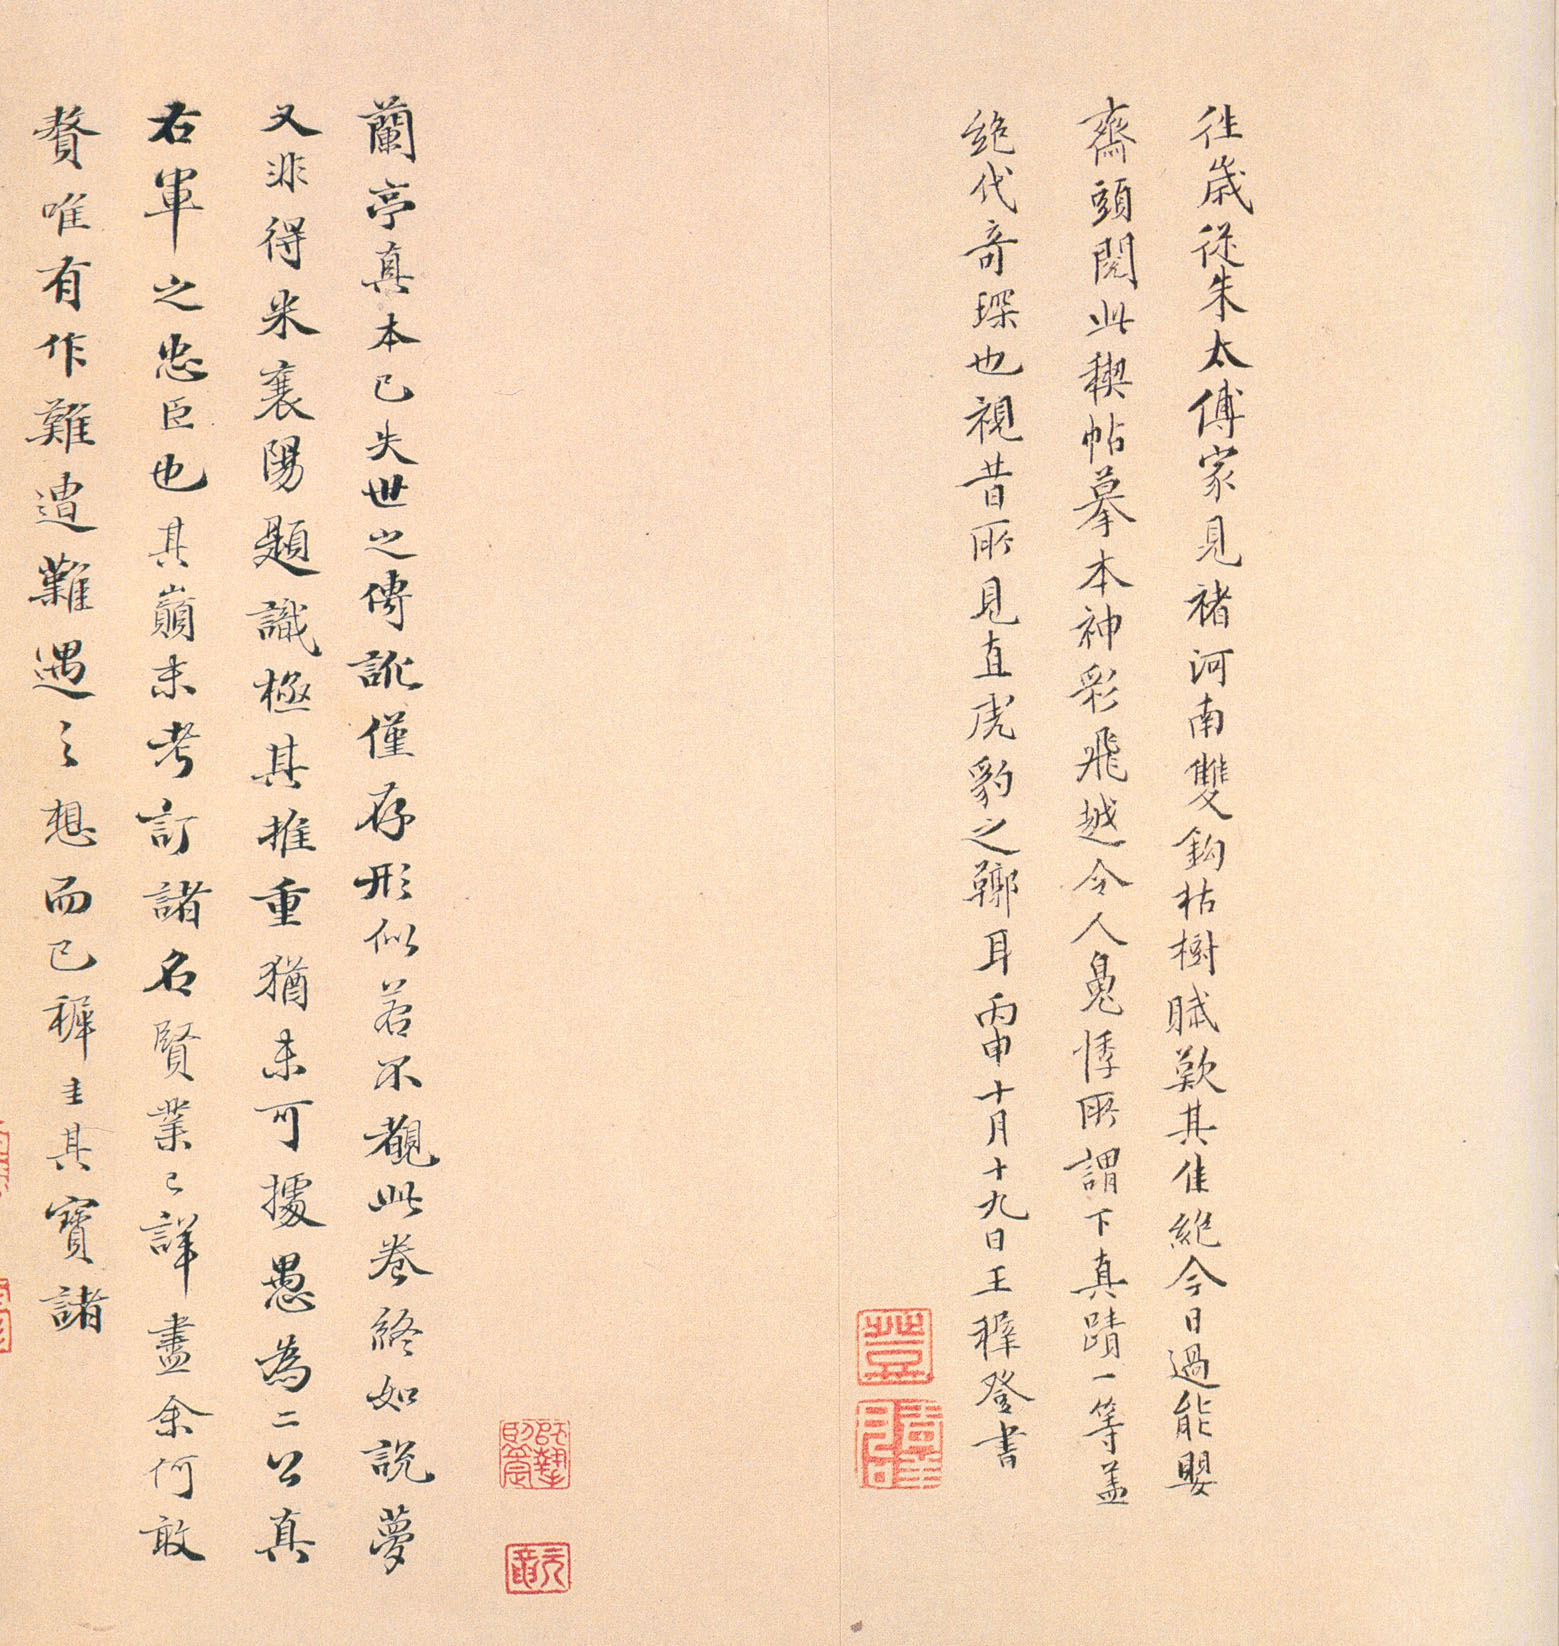 往歲從朱太傅家見褚河南雙鈎枯樹賦歎其佳絕今日過能嬰
齋頭閱此稧帖摹本神彩飛越令人鬼悸所謂下真蹟一等蓋
絕代奇琛也視昔所見直虎豹之鞹耳丙申十月十九日王穉登書
蘭亭真本已失世之傳訛僅存形似若不覩此卷終如說夢
又非得米襄陽題識極其推重猶未可據愚為二公真
右軍之忠臣也其巔末考訂諸名賢業已詳盡余何敢
贅唯有作難遭難遇之想而已穉圭其寶諸